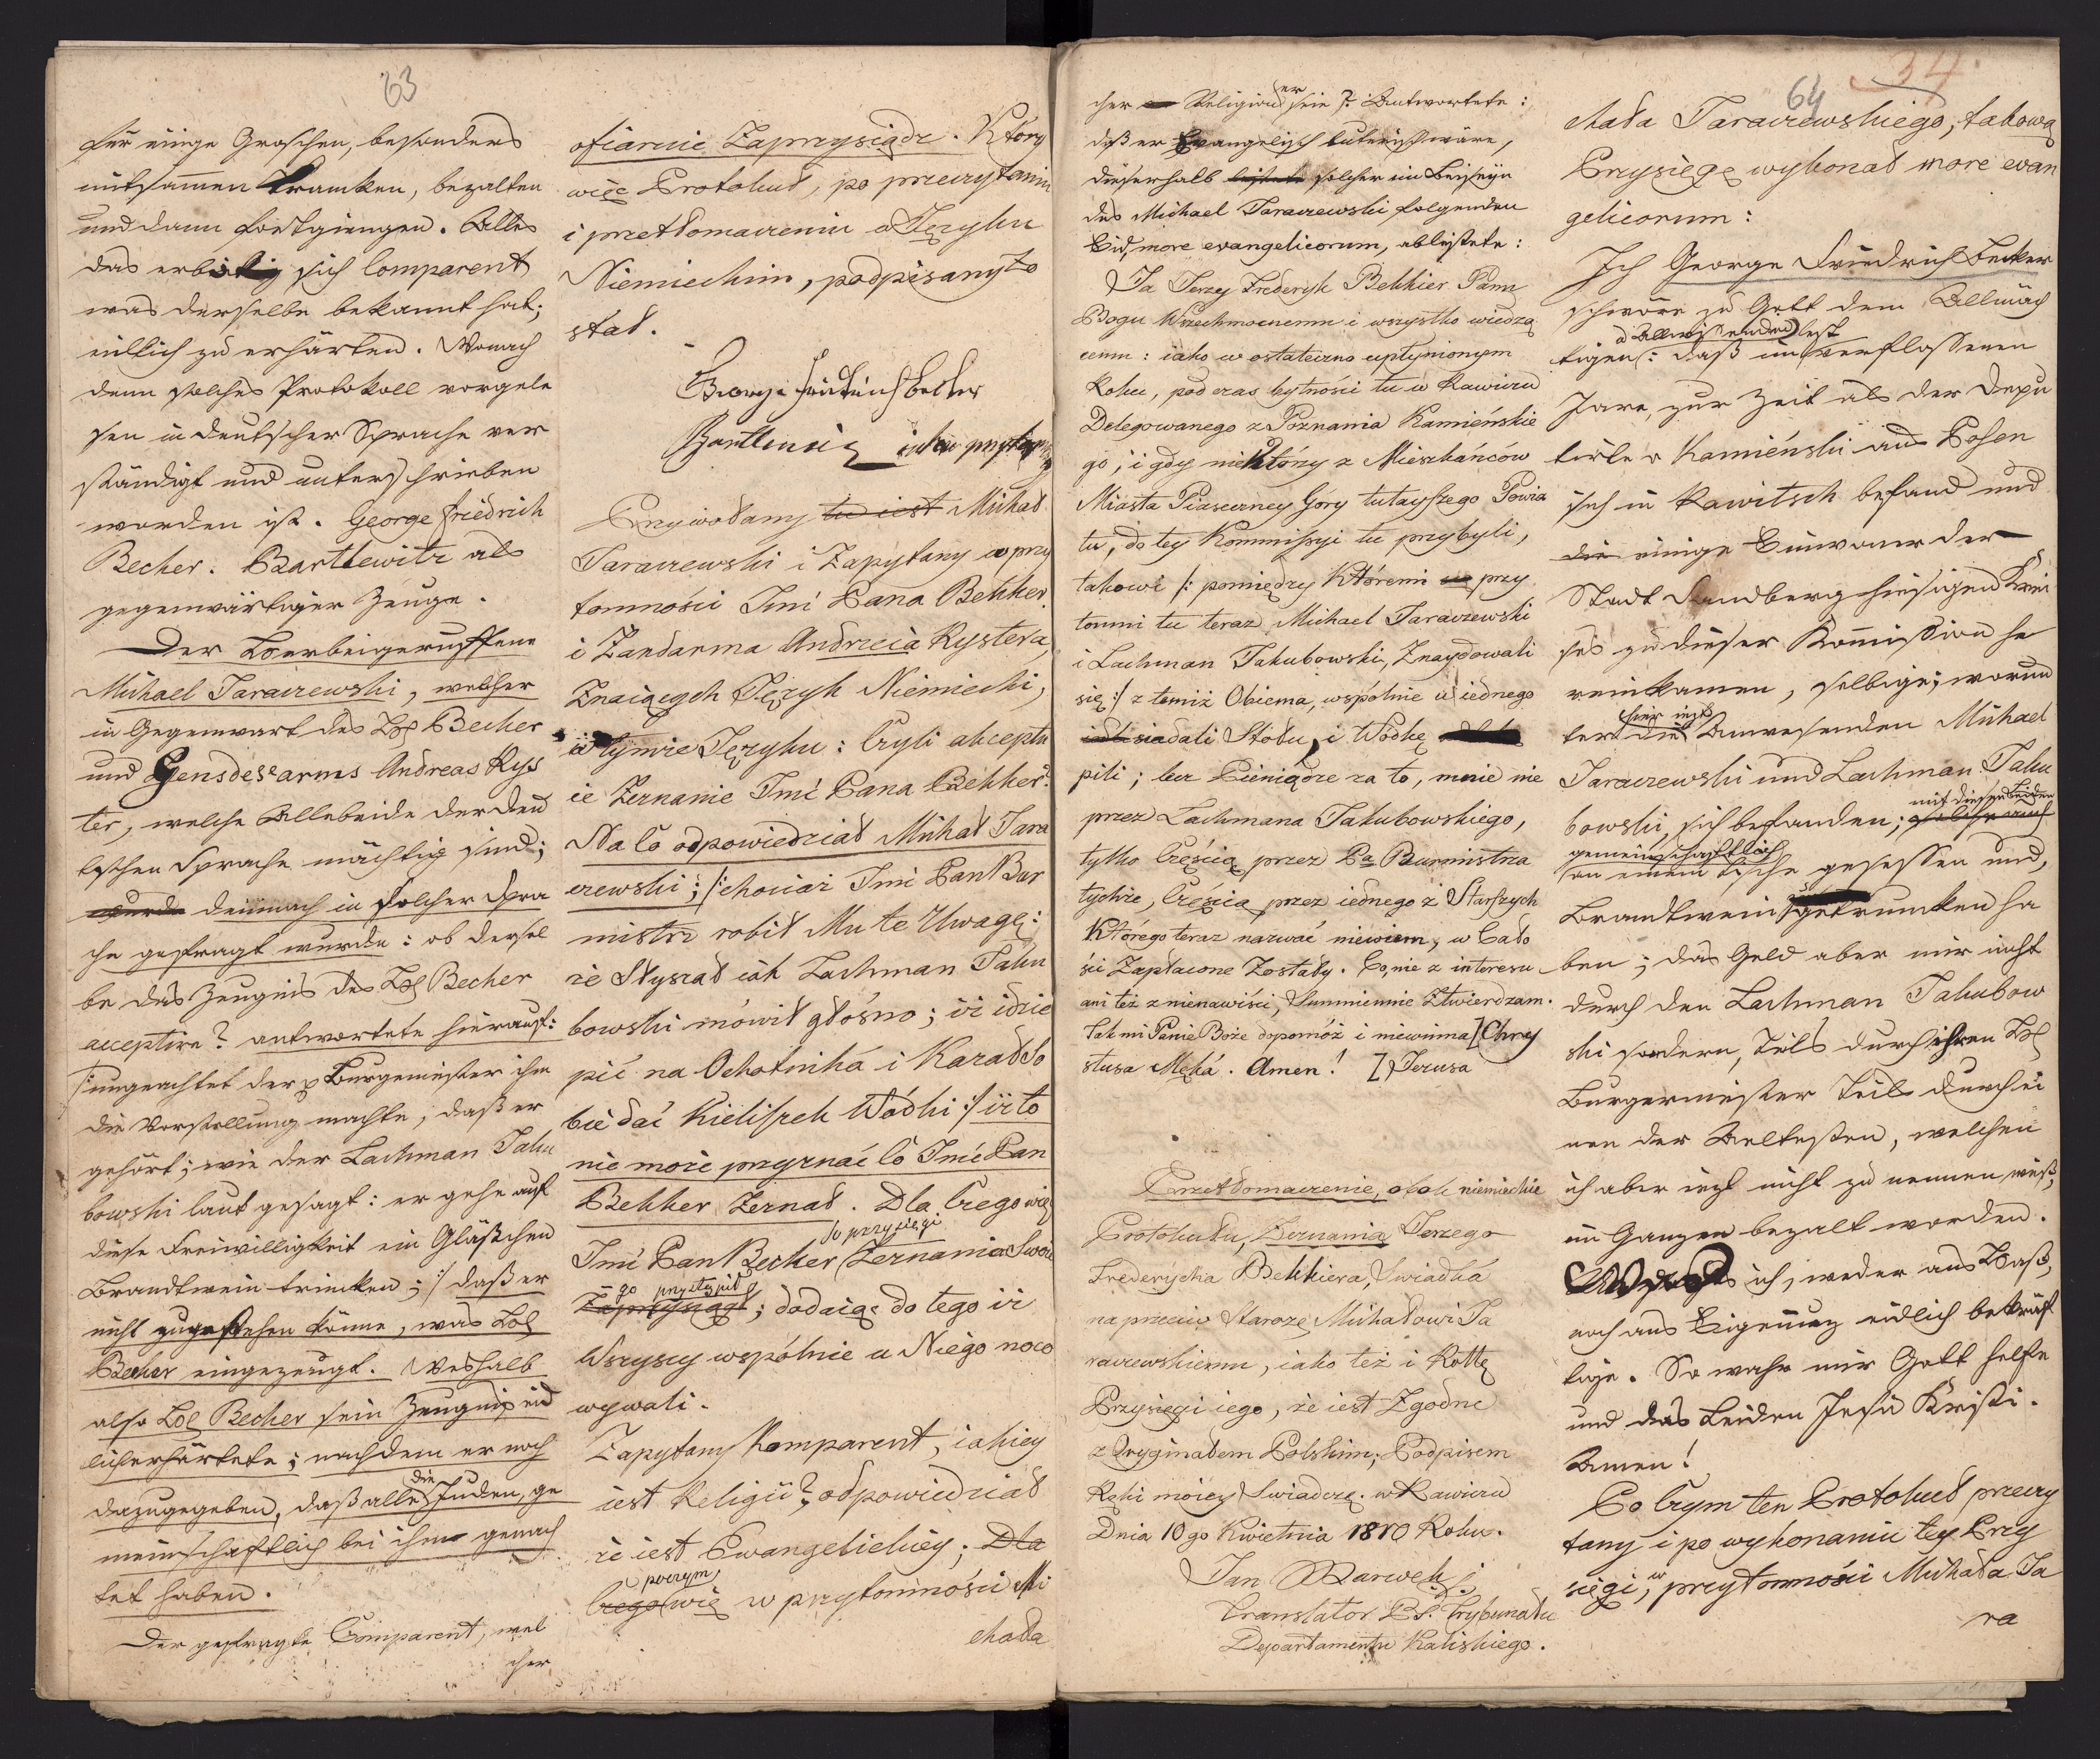 63
für einge Groschen, besonders
mitsammen trancken, bezalten
und dann fortgiengen. Alles
das erbötig sich Comparent
was derselbe bekannt hat;
eidlich zu erhärten. Wonach
denn solches Protokoll vorgele
sen in deutscher Sprache ver
ständigt und unterschrieben
worden ist. George Friedrich
Becher. Bartlewitz als
gegenwärtiger Zeuge.
Der Herbeigeruffene
Michael Taraczewski, welcher
in Gegenwart des H Becher
und Gensdes'arms Andreas Rys
ter, welche Allebeide der deu
tschen Sprache mächtig sind;
wurde demnach in solcher Spra
che gefragt wurde: ob dersel
be das Zeugnis des H Becher
acceptire? antwortete hierauf:
/: ungeachtet der Burgemeister ihm
die Vorstellung machte, daß er
gehört; wie der Lachman Jaku
bowski laut gesagt: er gehe auf
diese Freiwilligkeit ein Gläßchen
Brandtwein trincken; :/ daß er
nicht zugestehen könne, was H
Becher eingezeugt. Weshalb
also H Becher sein Zeugniß eid
lich erhärtete; nachdem er noch
dazugegeben, daß alle die Juden, ge
meinschaftlich bei ihme genach
tet haben.
Der gefragte Comparent, wel
cher
ofiaruie Zaprzysiądz. Który
więc Protokuł, po przeczytaniu
i przetłomaczeniu w Języku
Niemieckim, podpisany zo
stał.
George Friedrich Becker
Bartlewicz iako przytomny
Przywołany tu iest Michał
Taraczewski i Zapytany w przy
tomności Jmć Pana Bekker
i Żandarma Andrzeia Rystera,
Znaiących Język Niemiecki,
w tymże Języku: Czyli akceptu
ie Zeznanie Jmć Pana Bekker?
Na to odpowiedział Michał Tara
czewski; /: chociaż Jmć Pan Bur
mistrz robił Mu te Uwagę:
że Słyszał iak Lachman Jaku
bowski mówił głośno; iż idzie
pić na Ochotnika i Kazał So
bie dać Kieliszek Wodki :/ iż to
nie może przyznać co Jmć Pan
Bekker Zeznał. Dla Czego więc
Jmć Pan Becker do przysięgi Zeznania Swoie
go przystąpił Zaprzysiągł; dodaiąc do tego iż
Wszyscy wspólnie u Niego noco
wywali.
Zapytany Komparent, iakiey
iest Religii? odpowiedział
że iest Ewangelickiey; Dla
Czego poczym więc w przytomności Mi
chała
34
64
cher Religion er seie? Antwortete:
daß er Evangelisch luterisch wäre,
dieserhalb solcher im Beiseyn
des Michael Taraczewski folgenden
Eid, more evangelicorum, ableistete:
Ja Jerzy Frederyk Bekkier Panu
Bogu Wszechmocnemu i wszystko wiedzą
cemu: iako w ostateczno upłynionym
Roku, pod czas bytności tu w Rawiczu
Delegowanego z Poznania Kamieńskie
go, i gdy niektóry z Mieszkańców
Miasta Piaseczney Góry tutayszego Powia
tu, do tey Kommissyi tu przybyli,
takowi /: pomiędzy któremi przy
tomni tu teraz Michael Taraczewski
i Lachman Jakubowski, Znaydowali
się :/ z temiż Obiema, wspólnie u iednego
siadali Stołu, i Wodkę
pili; lecz Pieniądze za to, mnie nie
przez Lachmana Jakubowskiego,
tylko Częścią przez Pa Burmistrza
tychże, Częścią przez iednego z Starszych
Którego teraz nazwać niewiem, w Cało
ści Zapłacone Zostały. Co, nie z interesu
ani też z nienawiści, Summiennie Ztwierdzam.
Tak mi Panie Boże dopomóż i niewinna Chry
stusa Męka. Amen! Jezusa
Przetłomaczenie, obok niemieckie
Protokułu, Zeznania Jerzego
Frederycha Bekkiera, Swiadka
na przeciw Staroze Michałowi Ta
raczewskiemu, iako też i Rotte
Przysięgi iego, że iest Zgodne
z Orygniałem Polskim; Podpisem
Ręki moiey Swiadczę. w Rawiczu
Dnia 10go Kwietnia 1810 Roku.
Jan Marwek
Translator P.S. Trybunału
Departamentu Kaliskiego.
chała Taraczewskiego, takową
Przysięgę wykonał more evan
gelicorum:
Ich George Friedrich Becker
schwöre zu Gott dem Allmäch
tigen d Allwissenden: daß im lest verflossenen
Jare, zur Zeit als der Depu
tirte v Kamieński aus Posen
sich in Rawitsch befand und
die einige Einwoner der
Stadt Sandberg hiesigen Krei
ses zu dieser Komission he
reinkamen, selbige; worun
ter die hier iezt Anwesenden Michael
Taraczewski und Lachman Jaku
bowski, sich befanden; mit diesen beiden
gemeinschaftlich an einem Tische gesessen und,
Brandtwein getruncken ha
ben; das Geld aber mir nicht
durch den Lachman Jakubow
ski sondern, teils durch ihren H
Burgermeister teils durch ei
nen der Aeltesten, welchen
ich aber iezt nicht zu nennen weiß,
im Ganzen bezalt worden.
ich, weder aus Haß,
noch aus Eigennuz eidlich bekräf
tige. So wahr mir Gott helfe
und das Leiden Jesu Kristi.
Amen!
Po Czym ten Protokuł przeczy
tany i po wykonaniu tey Przy
sięgi, w przytomności Michała Ta
ra